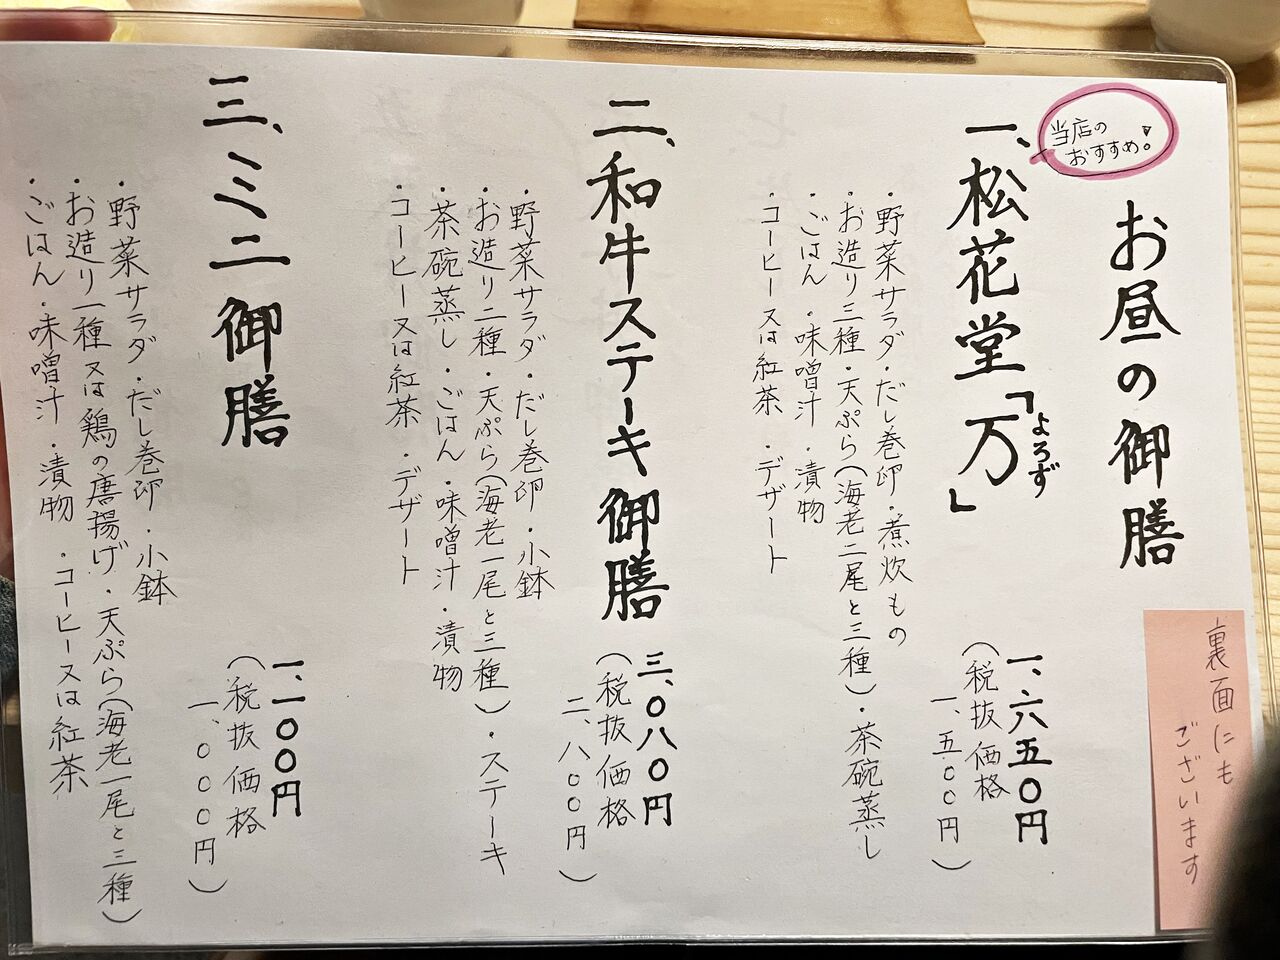 お昼の御膳
当店の
おすすめ!
一、松花堂「万」
よろず
・野菜サラダ・だし巻卵・煮炊もの
・お造り三種・天ぷら(海老二尾と三種)・茶碗蒸し
・ごはん・味噌汁・漬物
・コーヒー又は紅茶・デザート
一、六五〇円
(税抜価格
一、五〇〇円)
二、和牛ステーキ御膳
・野菜サラダ・だし巻卵・小鉢
・お造り二種・天ぷら(海老一尾と三種)・ステーキ
・茶碗蒸し・ごはん・味噌汁・漬物
・コーヒー又は紅茶・デザート
三、〇八〇円
(税抜価格
二、八〇〇円)
三、ミニ御膳
・野菜サラダ・だし巻卵・小鉢
・お造り一種又は鶏の唐揚げ・天ぷら(海老一尾と三種)
・ごはん・味噌汁・漬物・コーヒー又は紅茶
一、一〇〇円
(税抜価格
一、〇〇〇円)
裏面にも
ございます